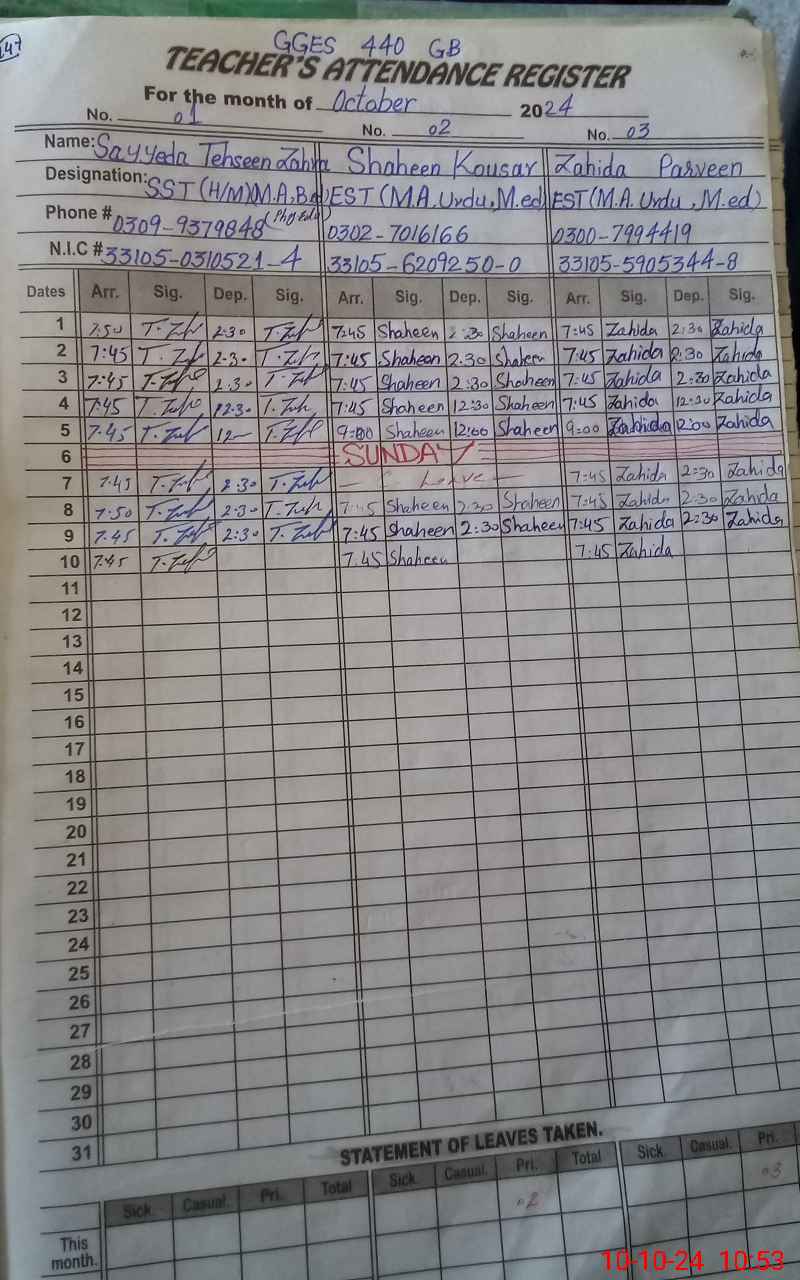 47
GGES 440 GB
TEACHER'S ATTENDANCE REGISTER
For the month of October 2024
No. 01 No. 02 No. 03
Name: Sayyeda Tehseen Zahra Shaheen Kousar Zahida Parveen
Designation: SST (H/M)(M.A, B.ed) EST (M.A. Urdu, M.ed) EST (M.A. Urdu, M.ed)
(Phy Edu)
Phone # 0309-9379848 0302-7016166 0300-7994419
N.I.C # 33105-0310521-4 33105-6209250-0 33105-5905344-8
Dates Arr. Sig. Dep. Sig. Arr. Sig. Dep. Sig. Arr. Sig. Dep. Sig.
1 7:50 2:30 7:45 Shaheen 2:30 Shaheen 7:45 Zahida 2:30 Zahida
2 7:45 2:30 7:45 Shaheen 2:30 Shaheen 7:45 Zahida 2:30 Zahida
3 7:45 2:30 7:45 Shaheen 2:30 Shaheen 7:45 Zahida 2:30 Zahida
4 7:45 12:30 7:45 Shaheen 12:30 Shaheen 7:45 Zahida 12:30 Zahida
5 7:45 12 9:00 Shaheen 12:00 Shaheen 9:00 Zahida 12:00 Zahida
6 SUNDAY
7 7:45 2:30 Leave 7:45 Zahida 2:30 Zahida
8 7:50 2:30 7:45 Shaheen 2:30 Shaheen 7:45 Zahida 2:30 Zahida
9 7:45 2:30 7:45 Shaheen 2:30 Shaheen 7:45 Zahida 2:30 Zahida
10 7:45 7:45 Shaheen 7:45 Zahida
11
12
13
14
15
16
17
18
19
20
21
22
23
24
25
26
27
28
29
30
31
STATEMENT OF LEAVES TAKEN.
Sick Casual. Pri. Total Sick. Casual. Pri. Total Sick. Casual. Pri.
02 03
This
month.
10-10-24 10:53